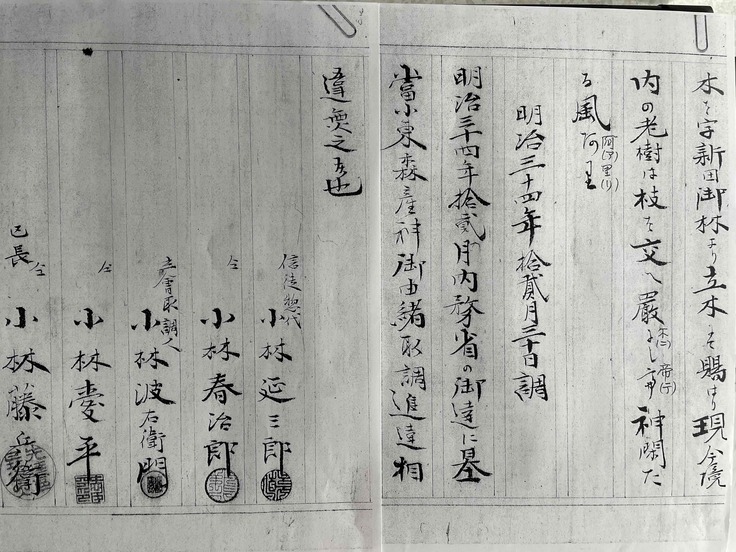 木を字新田御林より立木を賜はり現今境
内の老樹は枝を交へ嚴
神閑た
る風阿里
阿(ア)里(リ)
明治三十四年拾貳月三十日調
明治三十四年拾貳月内務省の御達に基
當小東森産神御由緒取調進達相
違無之
也
信徒惣代
小林延三郎
仝
小林春治郎
立會取調人
小林波右衛門
仝
小林慶平
仝
區長
小林藤兵衛